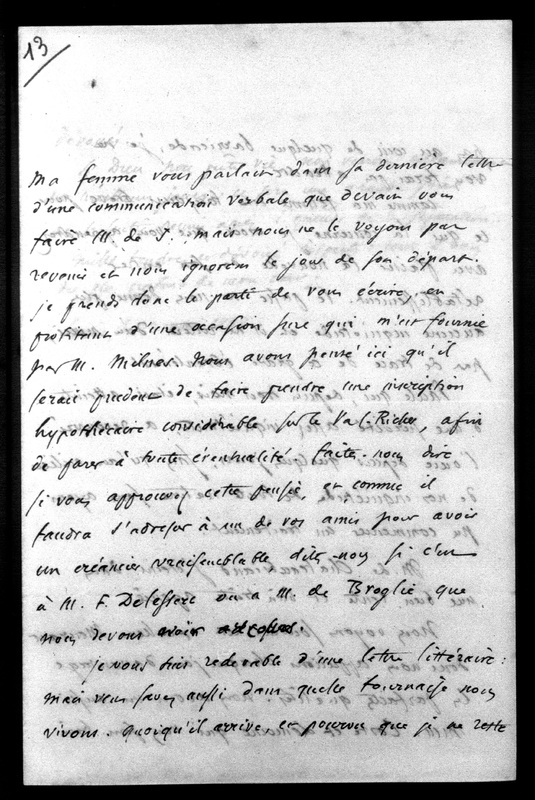 13
Ma femme vous parlait dans sa dernière lettre
d'une communication verbale que devait vous
faire M. de S. mais nous ne le voyons pas
revenir et nous ignorons le jour de son départ.
je prends donc le parti de vous écrire, en
profitant d'une occasion sure qui m'est fournie
par M. Milnes. Nous avons pensé ici qu'il
serait prudent de faire prendre une inscription
hypothécaire considérable sur le Val-Richer, afin
de parer à toute éventualité. faites-nous dire
si vous approuvez cette pensée, et comme il
faudra s'adresser à un de vos amis pour avoir
un créancier vraisemblable dites-nous si c'est
à M. F. Delessert ou à M. de Broglie que
nous devons avoir recours.
je vous suis redevable d'une lettre littéraire:
mais vous savez aussi dans quelle fournaise nous
vivons. quoiqu'il arrive, et pourvu que je ne reste